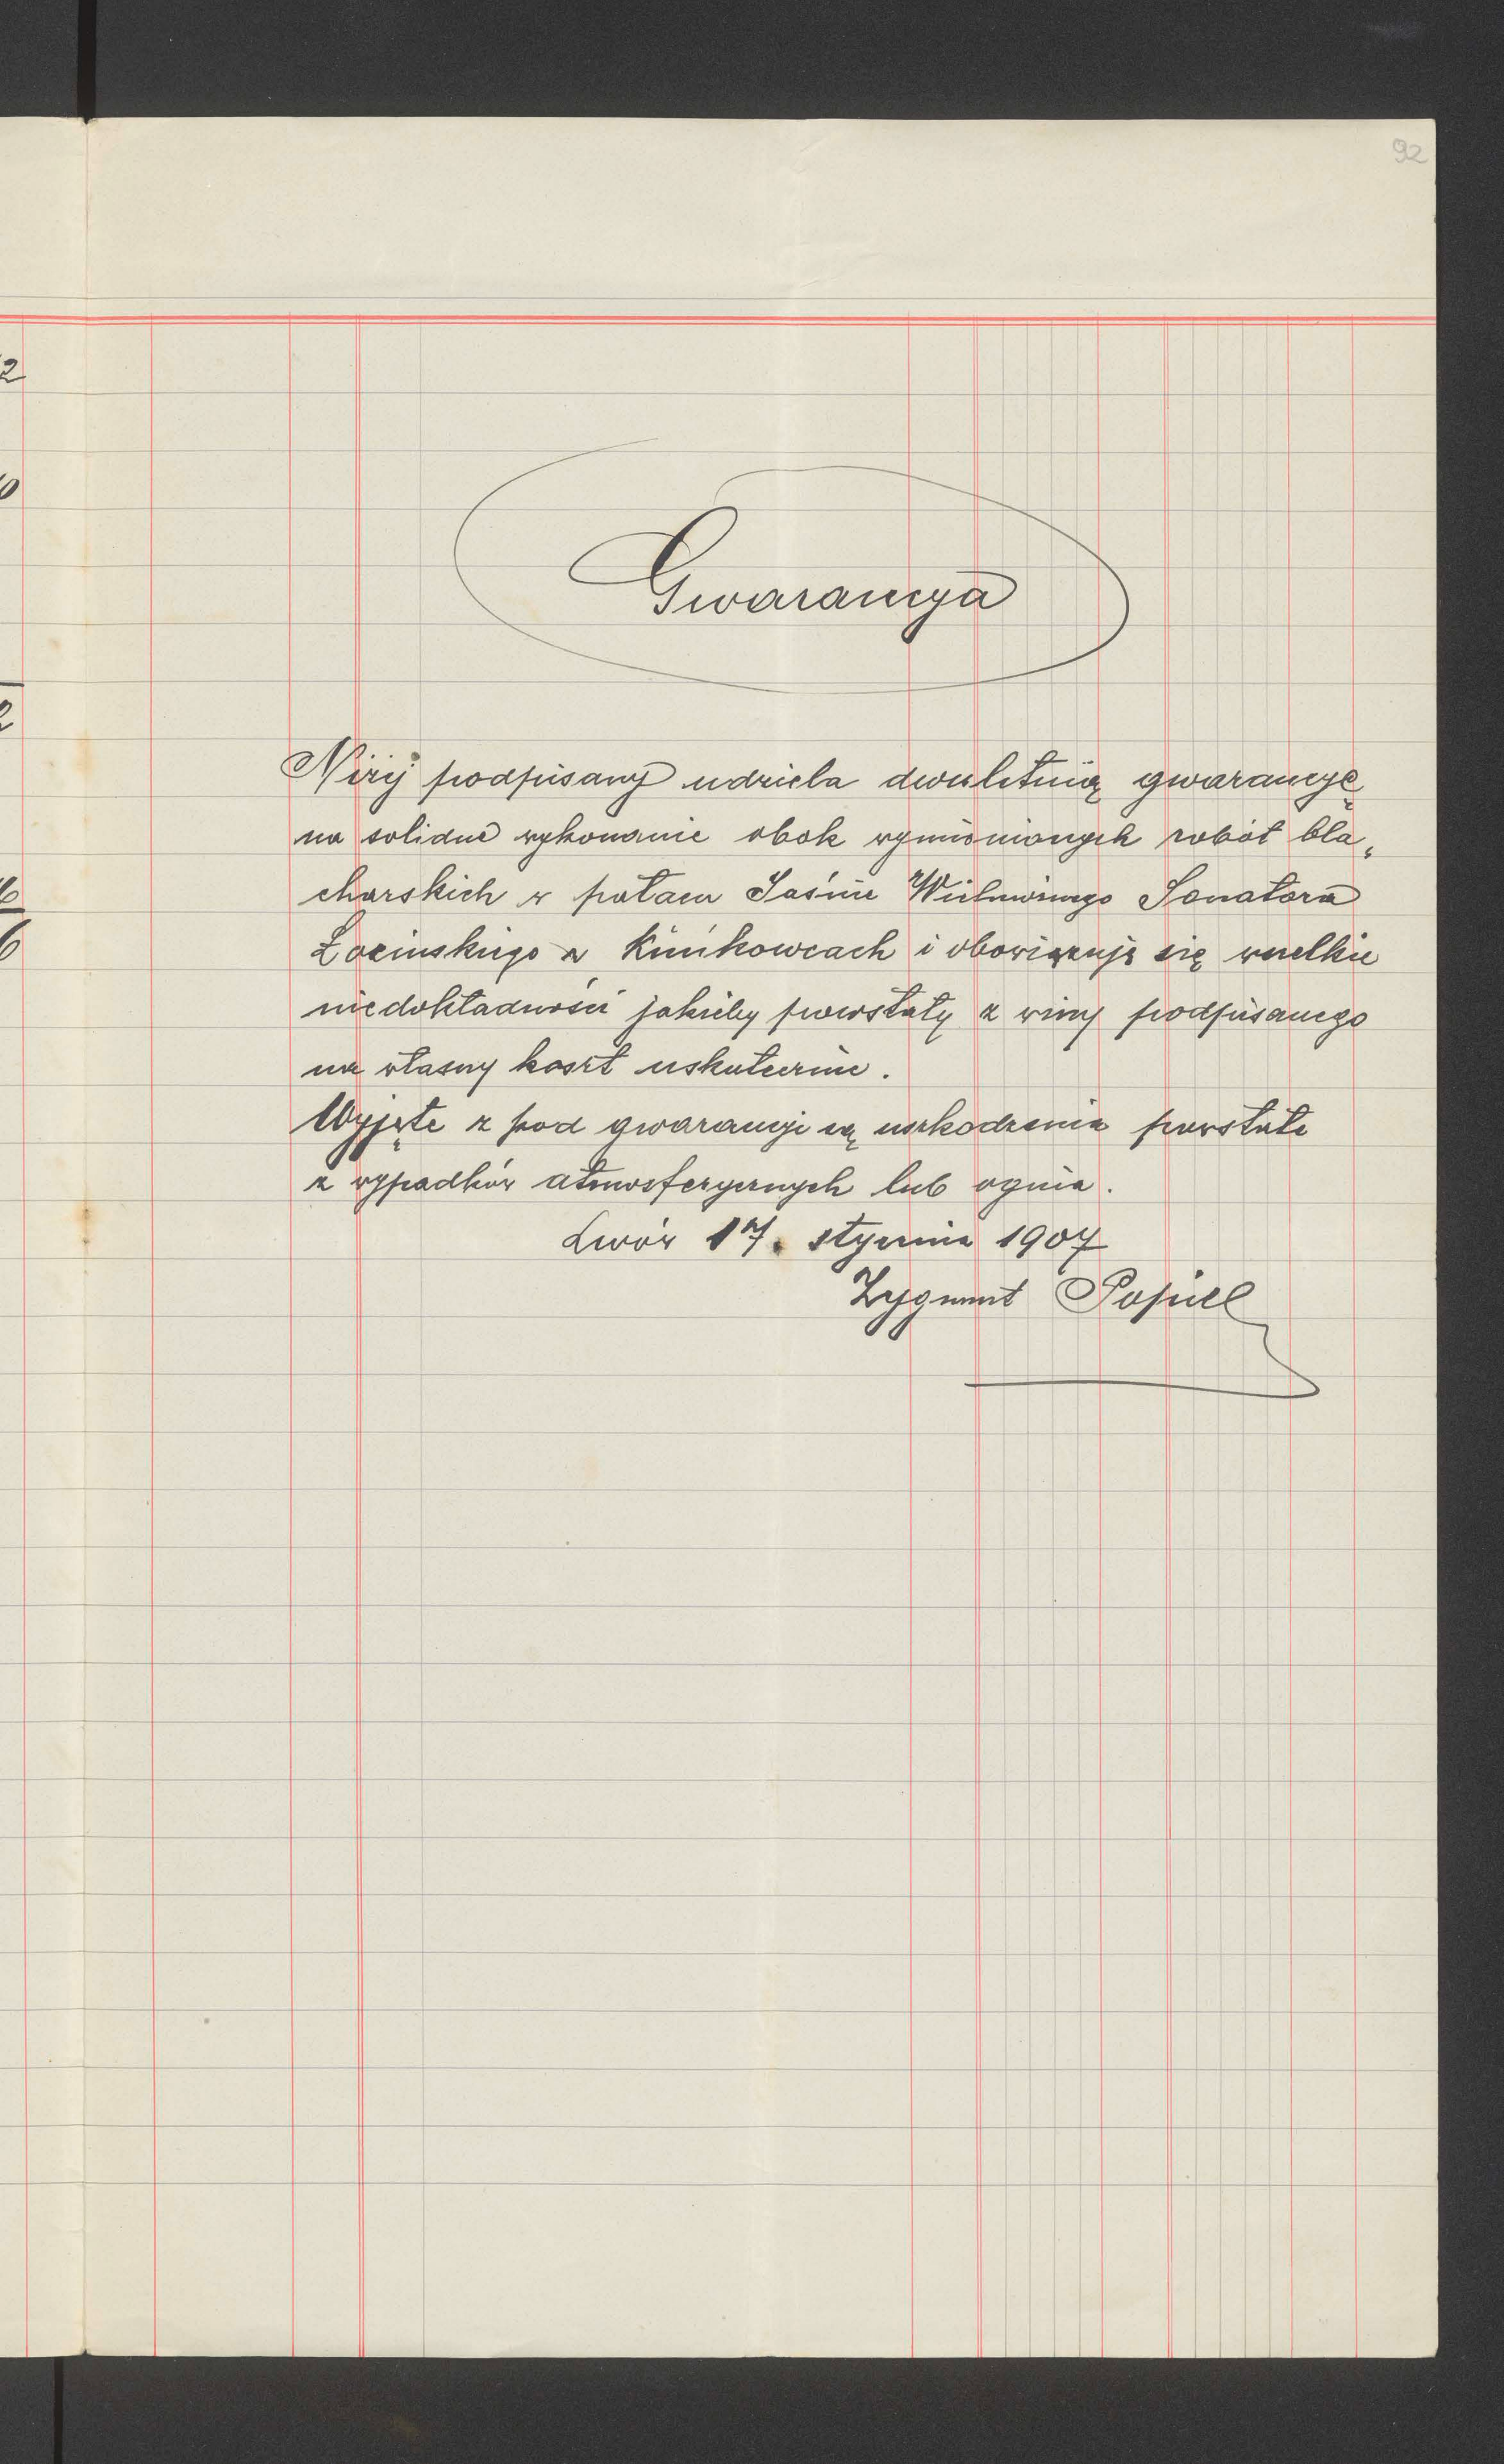 92
2
0
2
6
6
Gwarancya
Niżej podpisany udziela dwuletnią gwarancyę
na solidne wykonanie obok wymienionych robót bla„
charskich w pałacu Jaśnie Wielmożnego Senatora
Łozinskiego w i obowiązuje się wszelkie
niedokładności jakieby powstały z winy podpisanego
na własny koszt uskutecznie.
Wyjęte z pod gwarancyi są uszkodzenia powstałe
z wypadków atmosferycznych lub ognia.
Lwów 17. stycznia 1907
Zygmunt Popiel